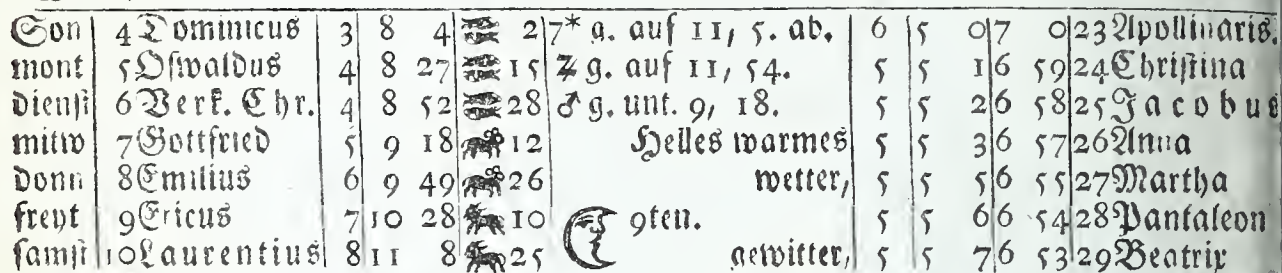 Son 4 Dominicus 3 8 4 2 7* g. auf 11, 5. ab. 6 5 0 7 0 23 Apollinaris.
mont 5 Oſwaldus 4 8 27 15 ♃ g. auf 11, 54. 5 5 1 6 59 24 Chriſtina
dienſt 6 Verk. Chr. 4 8 52 28 ♂ g. unt. 9, 18. 5 5 2 6 58 25 Jacobus
mittw 7 Gottfried 5 9 18 12 Helles warmes 5 5 3 6 57 26 Anna
donn 8 Emilius 6 9 49 26 wetter, 5 5 5 6 55 27 Martha
freyt 9 Ericus 7 10 28 10 9ten. 5 5 6 6 54 28 Pantaleon
ſamſt 10 Laurentius 8 11 8 25 gewitter, 5 5 7 6 53 29 Beatrix